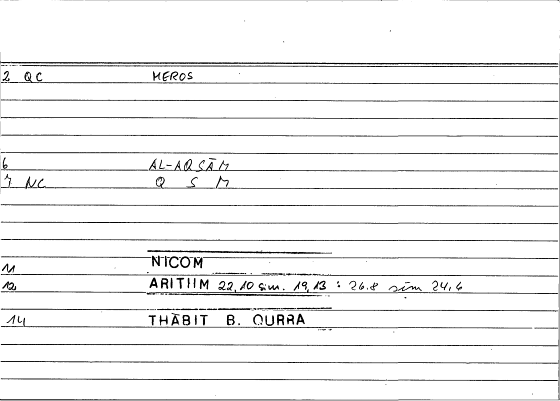 2 QC MEROS
6 AL-AQSĀM
7 NC Q S M
11 NICOM
12 ARITHM 22,10 sim. 19,13 : 26.8 sim 24,6
14 THĀBIT B. QURRA